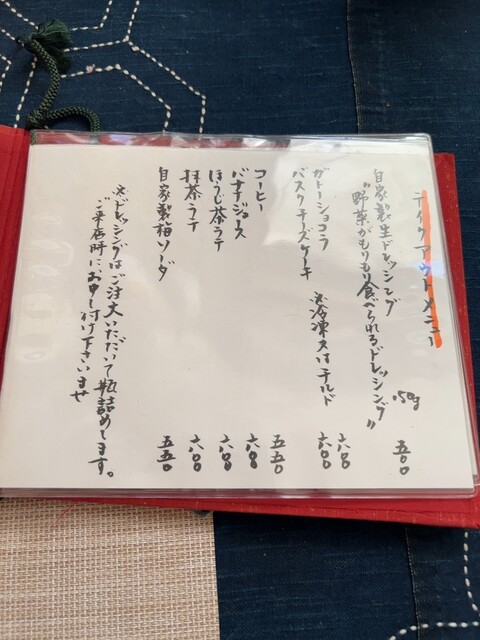 テイクアウトメニュー
自家製生ドレッシング 150g 五〇〇
"野菜がもりもり食べられるドレッシング"
ガトーショコラ 六〇〇
バスクチーズケーキ ※冷凍又はチルド 六〇〇
コーヒー 五五〇
バナナジュース 六〇〇
ほうじ茶ラテ 六〇〇
抹茶ラテ 六〇〇
自家製梅ソーダ 五五〇
※ドレッシングはご注文いただいて瓶詰めします。
ご来店時に、お申し付け下さいませ